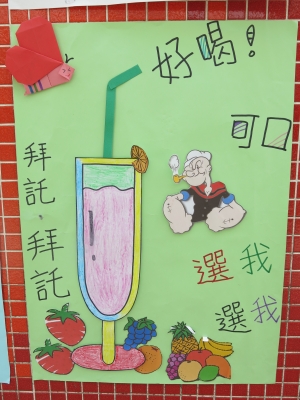 好喝!
可口
拜託,拜託
選我
選我